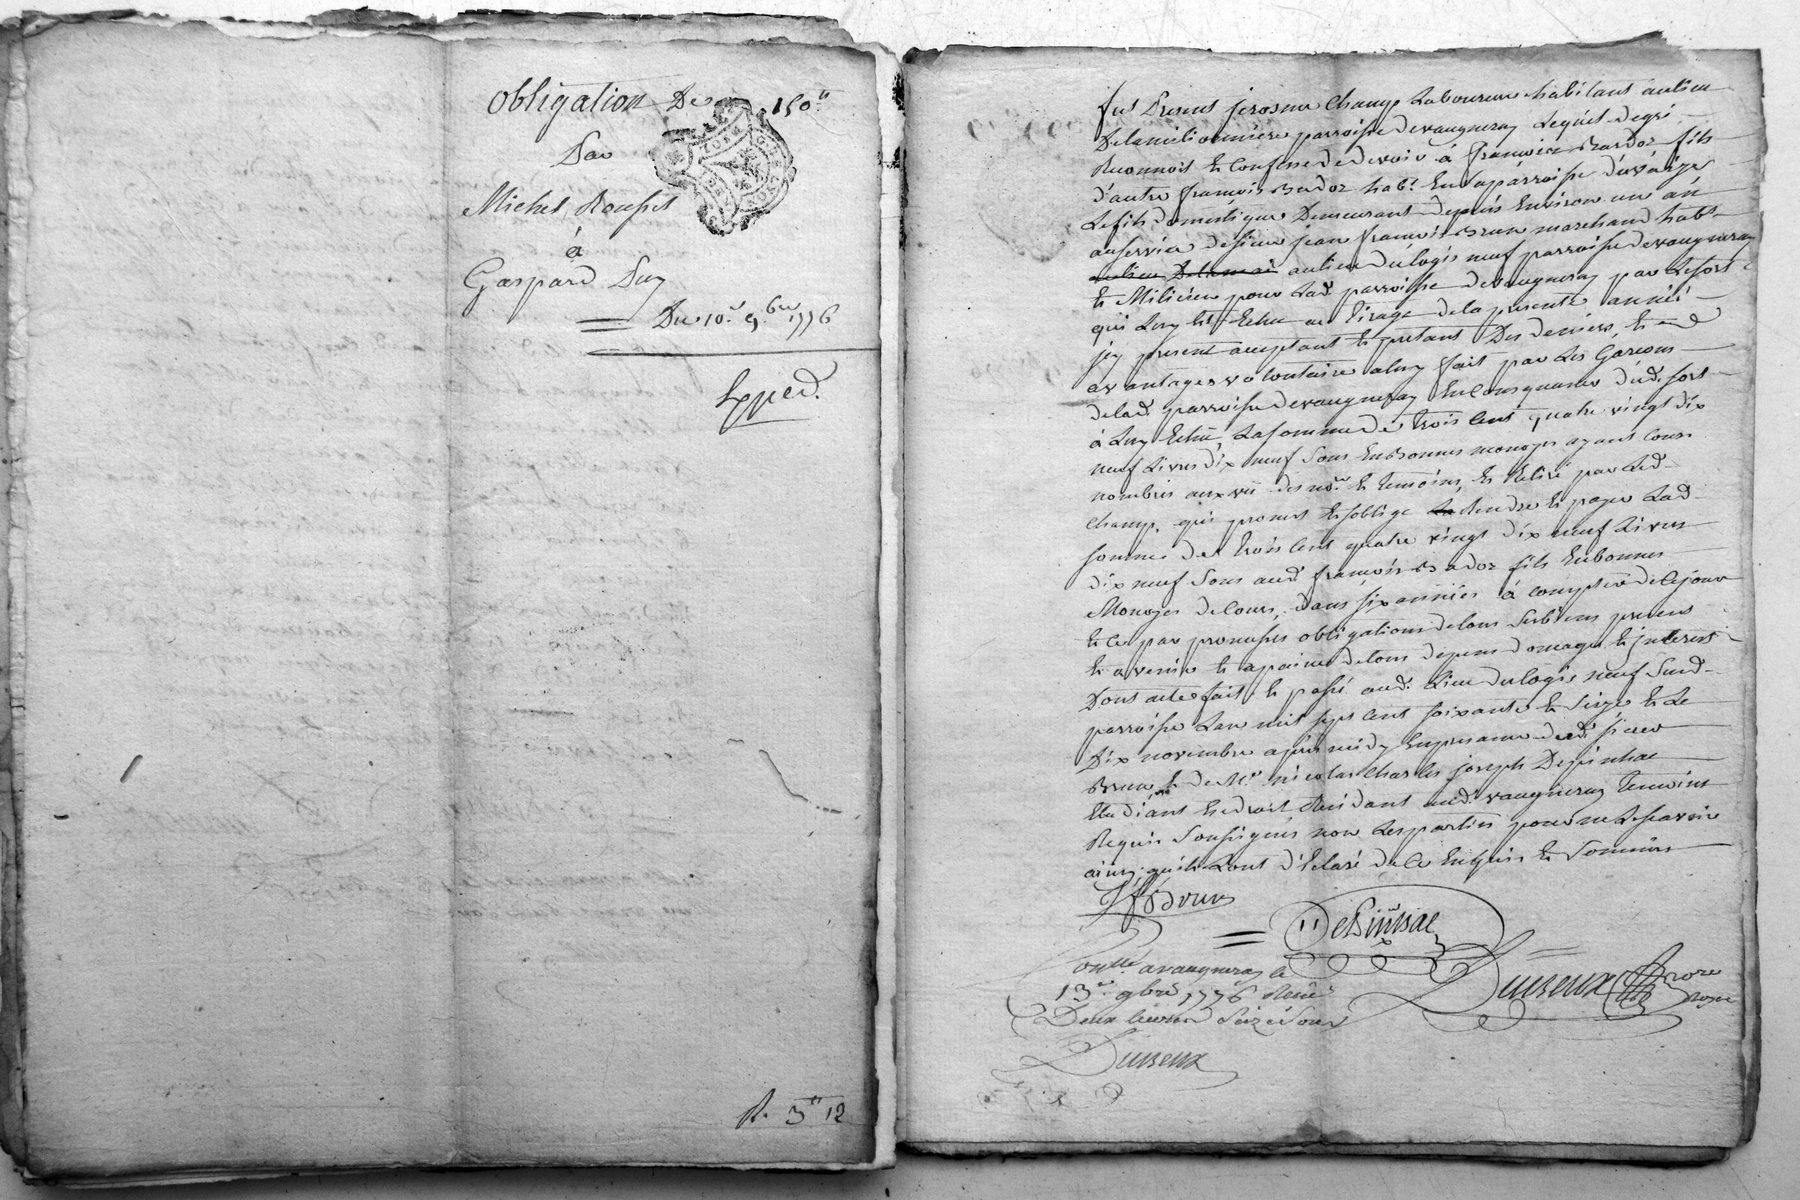 obligation De 150ᵗᵗ
Par
Michel Rousset
à
Gaspard Puy
Du 10ᵉ 9bre 1776
Exped.
R. 3ᵗᵗ 12
fut Present jerosme Champ Laboureur habitant au lieu
Delamilionniere parroisse devaugneray Lequel degré
Reconnoit et Confesse dedevoir à françois Badoz fils
d'autre françois Badoz habt. En Laparroisse
Le fils domestique Demeurant depuis Environ un an
auservice desieur jean françois Brun marchand habt.
au lieu du logis neuf parroisse devaugneray
et Milicien pour Lad. parroisse devaugneray par Lesort
qui Luy est Echu au tirage delapresente année
jcy present acceptant et pretant Des deniers et
avantages volontaire aluy fait par Les Garcons
delad. parroisse devaugneray En Consequence dud. sort
à Luy Echu, La somme de trois Cent quatre vingt dix
neuf Livres dix neuf Sous En Bonnes monoyes ayant cours
nombrés aux vu des nore. et temoins, et Retiré par Led.
Champ, qui promet et soblige Rendre et payer Lad.
somme de trois Cent quatre vingt dix neuf Livres
dix neuf Sous aud. françois Badoz fils En bonnes
Monoyes de Cours, dans six années à compter de Cejour
et Ce par promesses obligations de tous Ses biens presens
et avenir et apaine de tous depens domages et jnterest
Dont acte fait et passé aud. Lieu du logis neuf Sud.
parroisse Lan mil sept Cent soixante et Seize et Le
Dix novembre apres midy En presance dud. sieur
Brun et de Mr. nicolas Charles joseph Depinhac
Etudiant En droit Residant aud. vaugneray temoins
Requis Soussignés non Lesparties pour ne Lesçavoir
ainsy qu'ils ont déclaré de Ce Enquis et Sommés
JfBrun
Depinhac
nore
royal
Conllé. a vaugneray le
13e 9bre 1776 Reçu
Deux Livres Seize Sous